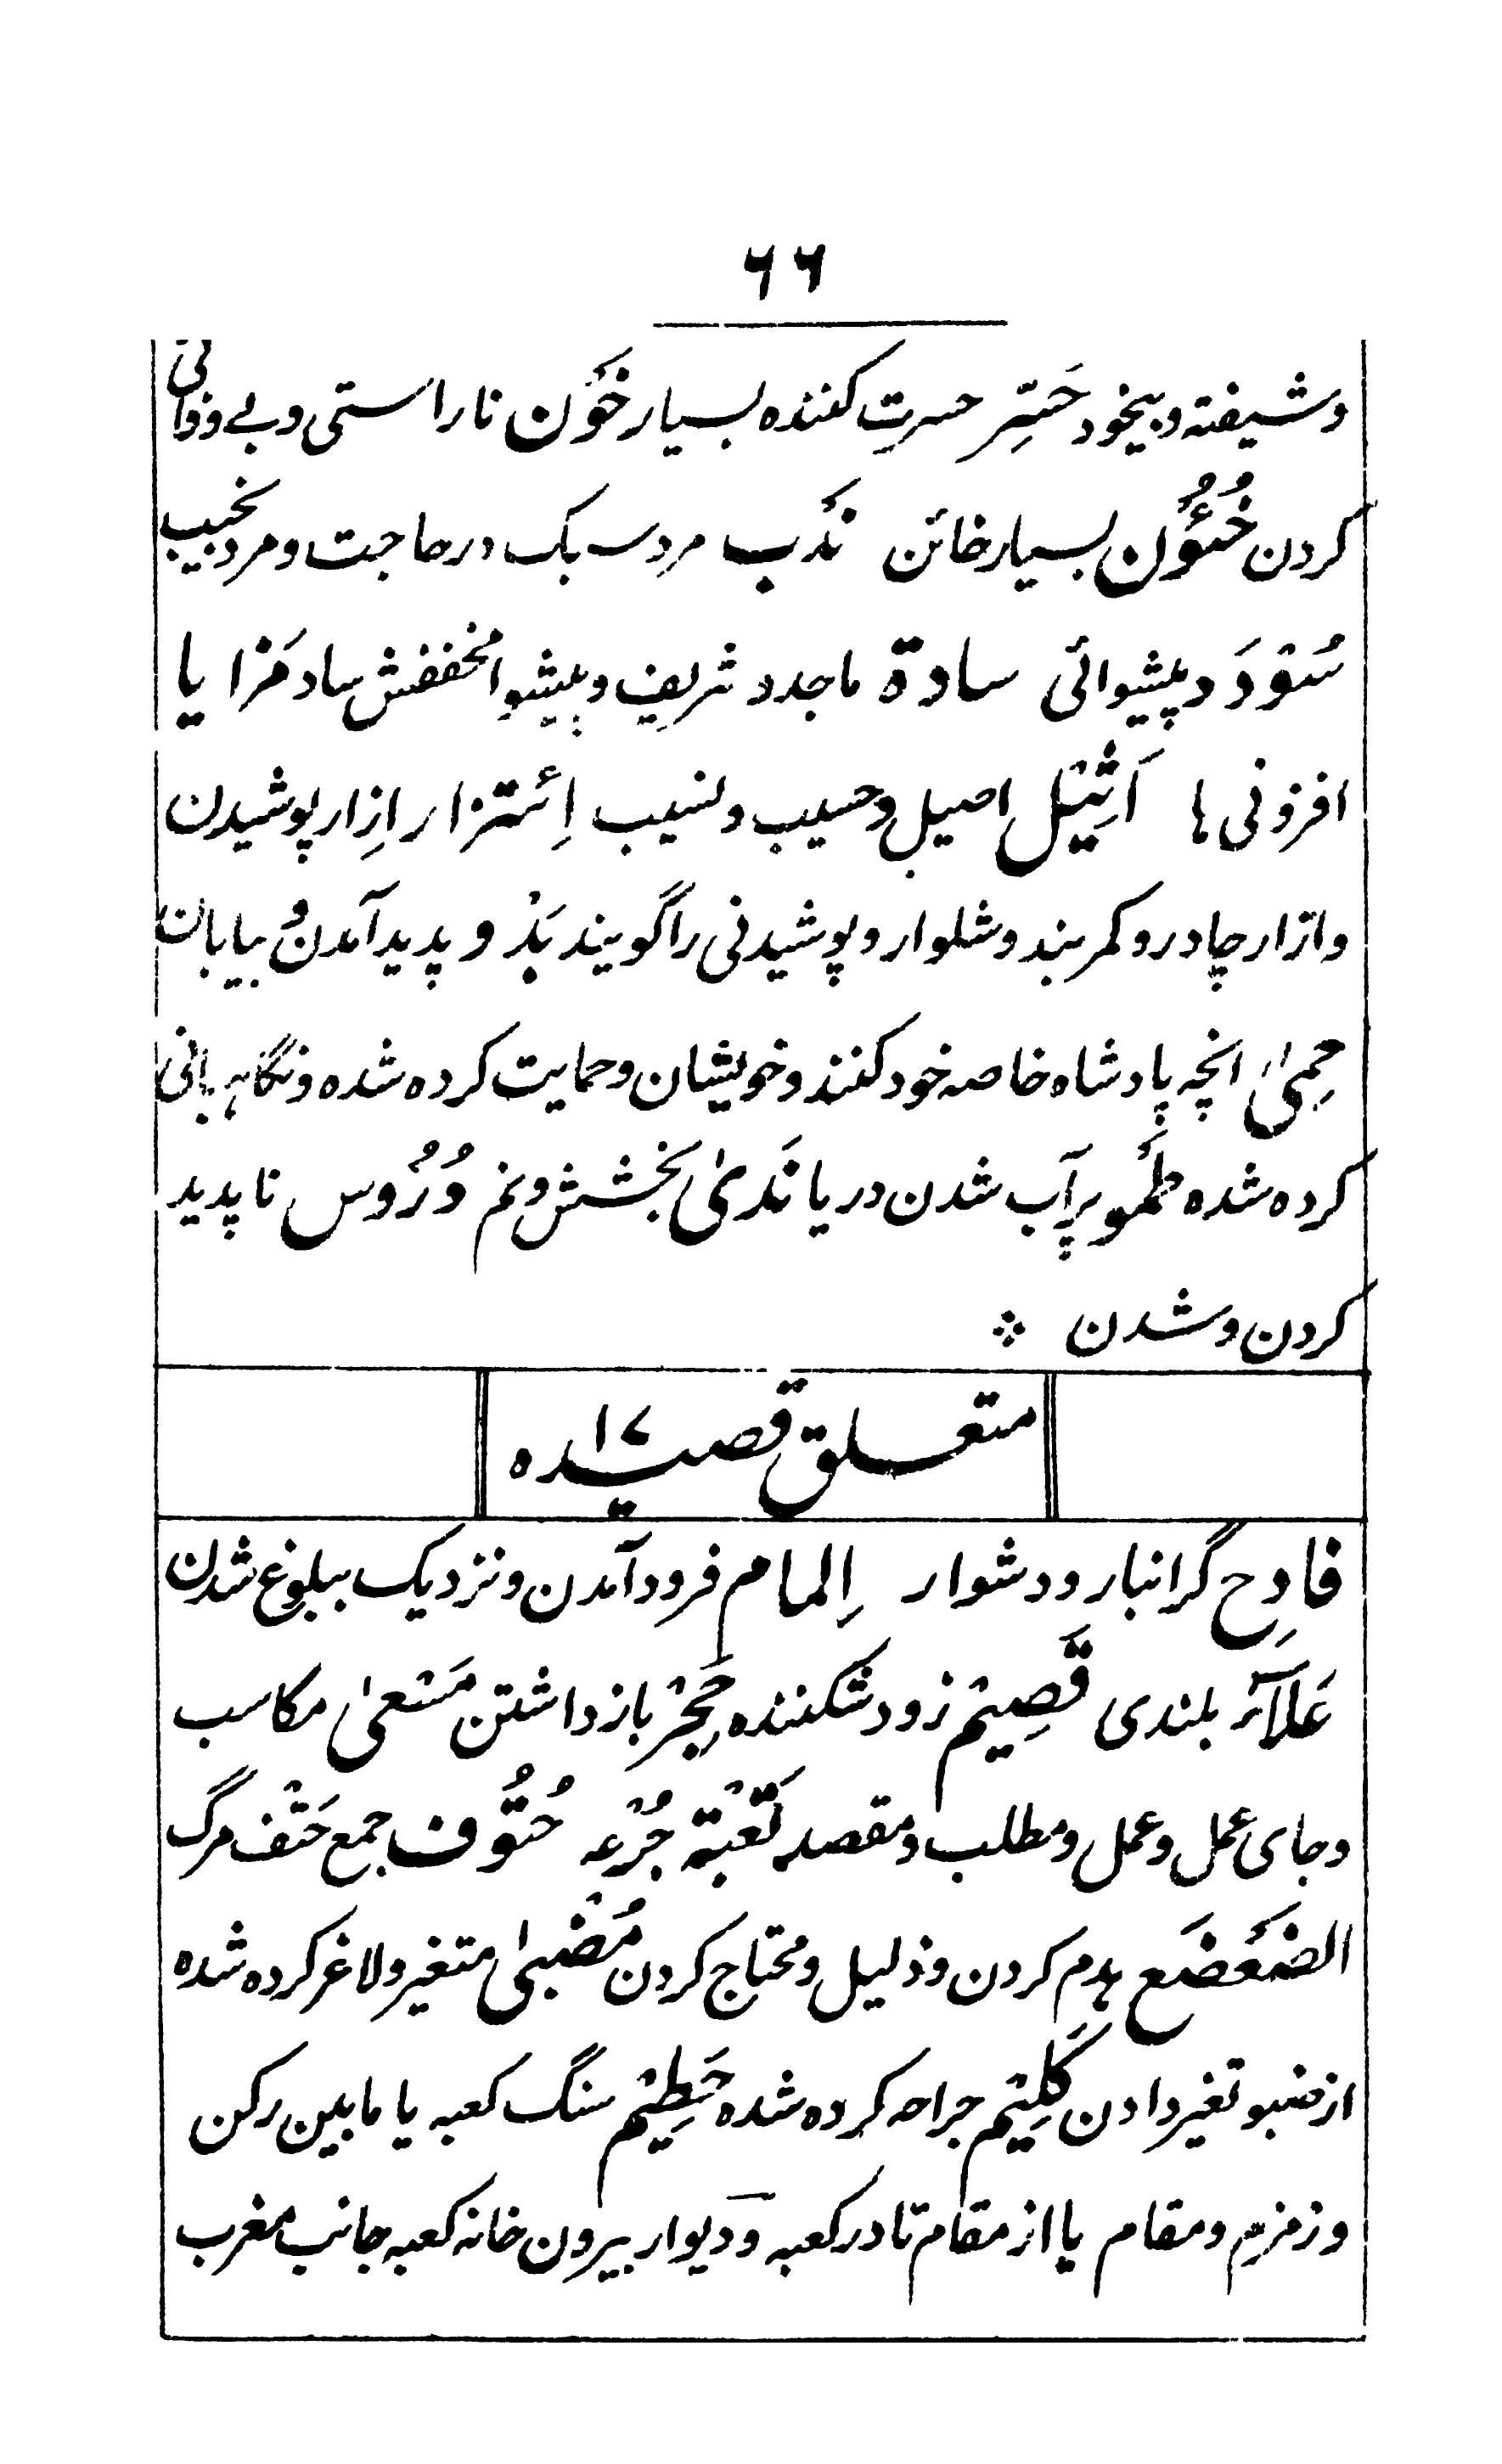 ۶۶
وشیفته وبیخود حَسِّر حسرت کننده بسیار خَوْن ناراستی وبے وفائی
کردن خُئُوْن بسیار خائن نَدْب مرد سبک در حاجت ومرد نجیب
سُؤْدَد پیشوائی سادة ماجد شریف وپیشوا مخففش ساد مَزایا
افزونی ها اَثِیْل اصیل وحسیب ونسیب اِئتزار ازار پوشیدن
وازار چادر وکمربند وشلوار وپوشیدنی را گویند بَدْو پدید آمدن و بیابان
حِمیٰ انچه پادشاه خاصه خود کنند وخویشان وحمایت کرده شده ونگاهبانی
کرده شده طَمْو پرآب شدن دریا نَدیٰ بخشش ونم دُرُوس ناپدید
کردن وشدن ؞
متعلق قصیده ۱۷
فادِح گرانبار ودشوار اِلمام فرود آمدن ونزدیک ببلوغ شدن
عَلآئر بلندی قَصِیْم زود شکننده حَجْر بازداشتن مَسْعیٰ مکاسب
وجای عمل وعمل ومطلب ومقصد نَغْبَة جُرْعه حُتُوْف جمع حَتْف مرگ
الضَعْضَع هدم کردن وذلیل ومحتاج کردن مُضْبیٰ متغیر ولاغر کرده شده
از ضبو تغیر دادن کَلِیْم جراحه کرده شده حَطِیْم سنگ کعبه یا مابین رکن
وزمزم ومقام یا از مقام تا در کعبه ودیوار بیرون خانه کعبه جانب مغرب